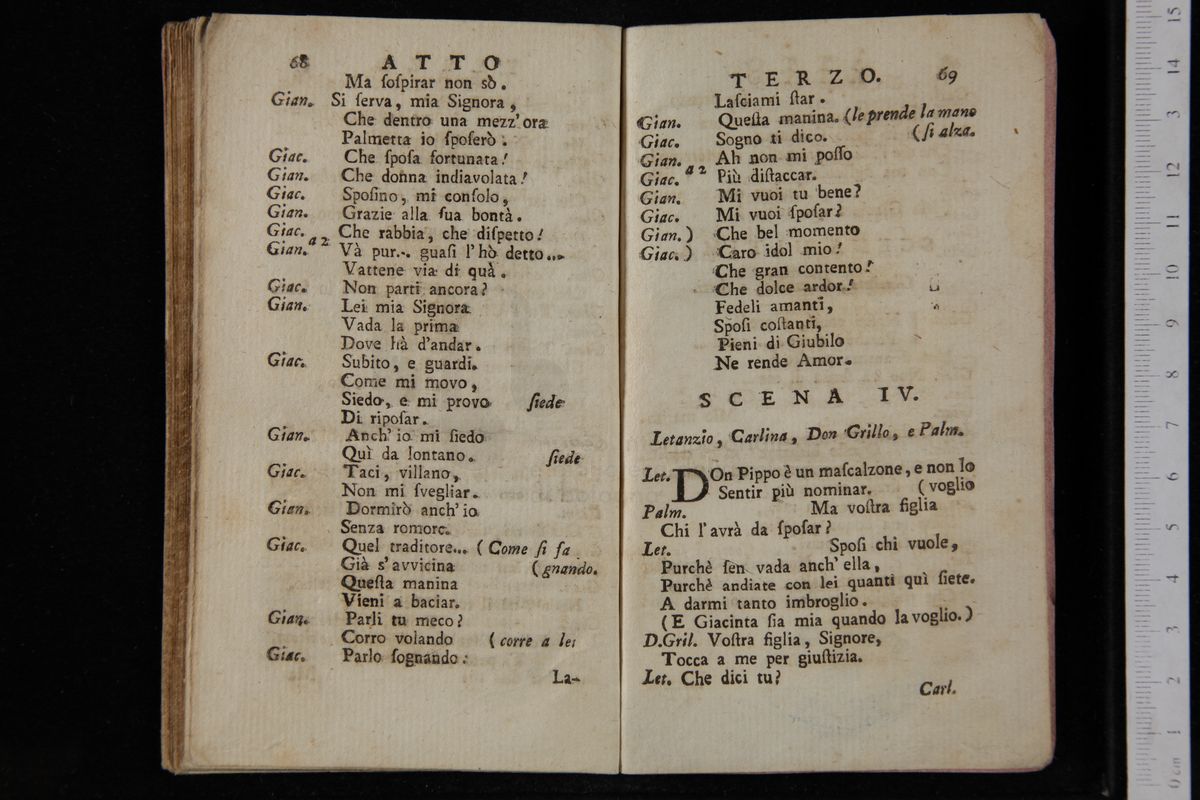 68 ATTO
Ma ſoſpirar non sò.
Gian. Si ſerva, mia Signora,
Che dentro una mezz'ora
Palmetta io ſpoſerò.
Giac. Che ſpoſa fortunata!
Gian. Che donna indiavolata!
Giac. Spoſino, mi conſolo,
Gian. Grazie alla ſua bontà.
Giac. Che rabbia, che diſpetto!
Gian. a 2 Và pur... guaſi l'hò detto...
Vattene via di quà.
Giac. Non parti ancora?
Gian. Lei mia Signora
Vada la prima
Dove hà d'andar.
Giac. Subito, e guardi.
Come mi movo,
Siedo, e mi provo ſiede
Di ripoſar.
Gian. Anch' io mi ſiedo
Quì da lontano. ſiede
Giac. Taci, villano,
Non mi ſvegliar.
Gian. Dormirò anch'io
Senza romore.
Giac. Quel traditore... (Come ſi ſa
Già s'avvicina (gnando.
Queſta manina
Vieni a baciar.
Gian. Parli tu meco?
Corro volando (corre a lei
Giac. Parlo ſognando:
La-
TERZO. 69
Laſciami ſtar.
Gian. Queſta manina. (le prende la mano
Giac. Sogno ti dico. (ſi alza.
Gian. Ah non mi poſſo
Giac. a 2 Più diſtaccar.
Gian. Mi vuoi tu bene?
Giac. Mi vuoi ſpoſar?
Gian. ) Che bel momento
Giac. ) Caro idol mio!
Che gran contento!
Che dolce ardor!
Fedeli amanti,
Spoſi coſtanti,
Pieni di Giubilo
Ne rende Amor.
SCENA IV.
Letanzio, Carlina, Don Grillo, e Palm.
Let. DOn Pippo è un maſcalzone, e non lo
Sentir più nominar. (voglio
Palm. Ma voſtra figlia
Chi l'avrà da ſpoſar?
Let. Spoſi chi vuole,
Purchè ſen vada anch' ella,
Purchè andiate con lei quanti quì ſiete.
A darmi tanto imbroglio.
(E Giacinta ſia mia quando la voglio.)
D.Gril. Voſtra figlia, Signore,
Tocca a me per giuſtizia.
Let. Che dici tu?
Carl.
15
14
13
12
11
10
9
8
7
6
5
4
3
2
1
0 cm